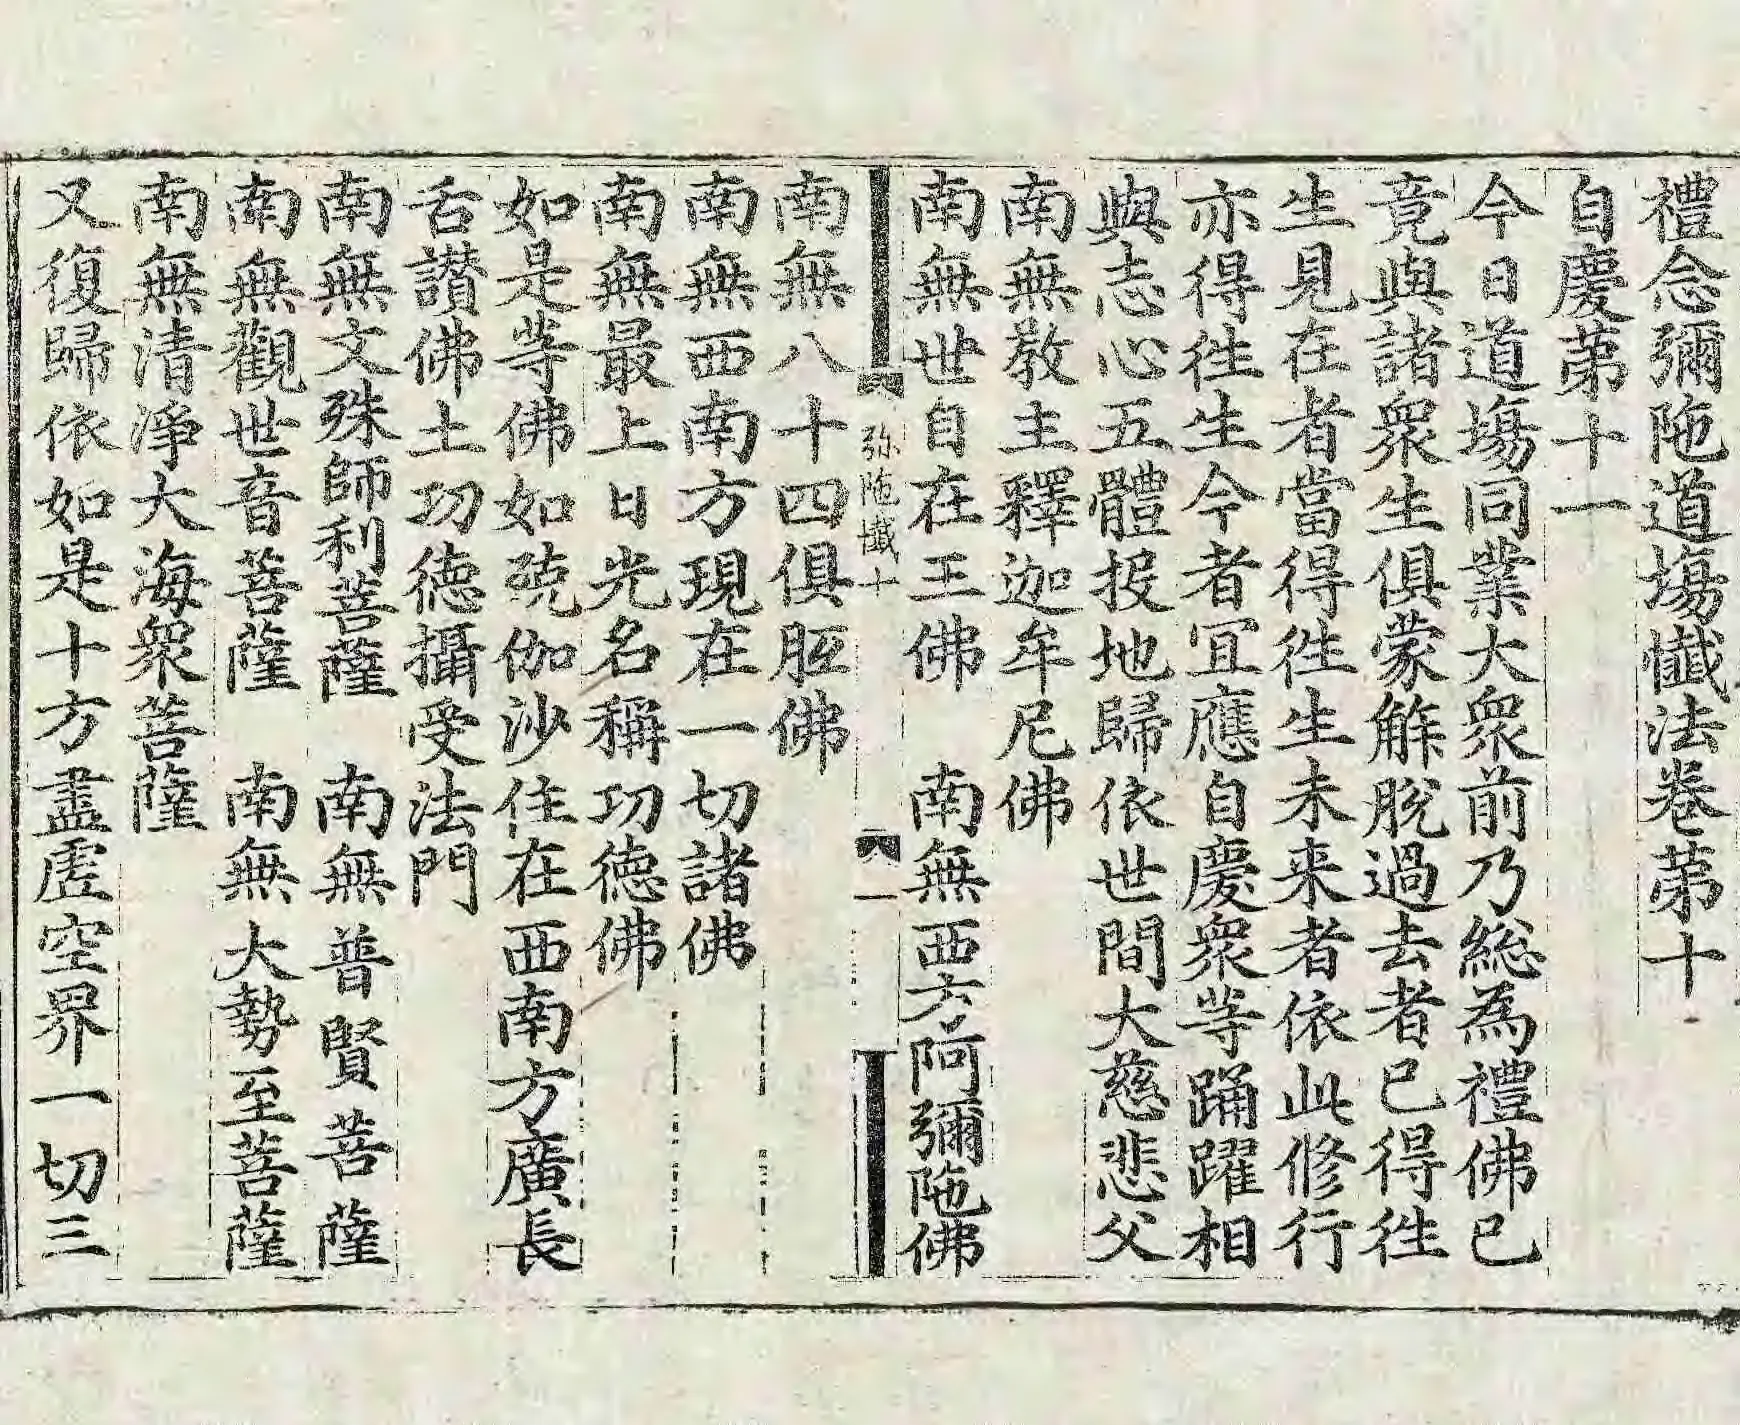 禮念彌陁道塲懺法卷苐十
自慶苐十一
今日道塲同業大衆前乃緫為禮佛已
竟與諸衆生俱蒙解脫過去者已得徃
生見在者當得徃生未来者依此修行
亦得徃生今者冝應自慶衆等踊躍相
與志心五體投地歸依世間大慈悲父
南無教主釋迦牟尼佛
南無世自在王佛　南無西六阿彌陁佛
弥陁懺十　一
南無八十四俱胝佛
南無西南方現在一切諸佛
南無最上日光名稱功德佛
如是等佛如殑伽沙住在西南方廣長
舌讃佛土功德攝受法門
南無文殊師利菩薩　南無普賢菩薩
南無觀世音菩薩　南無大勢至菩薩
南無清淨大海衆菩薩
又復歸依如是十方盡虛空界一切三